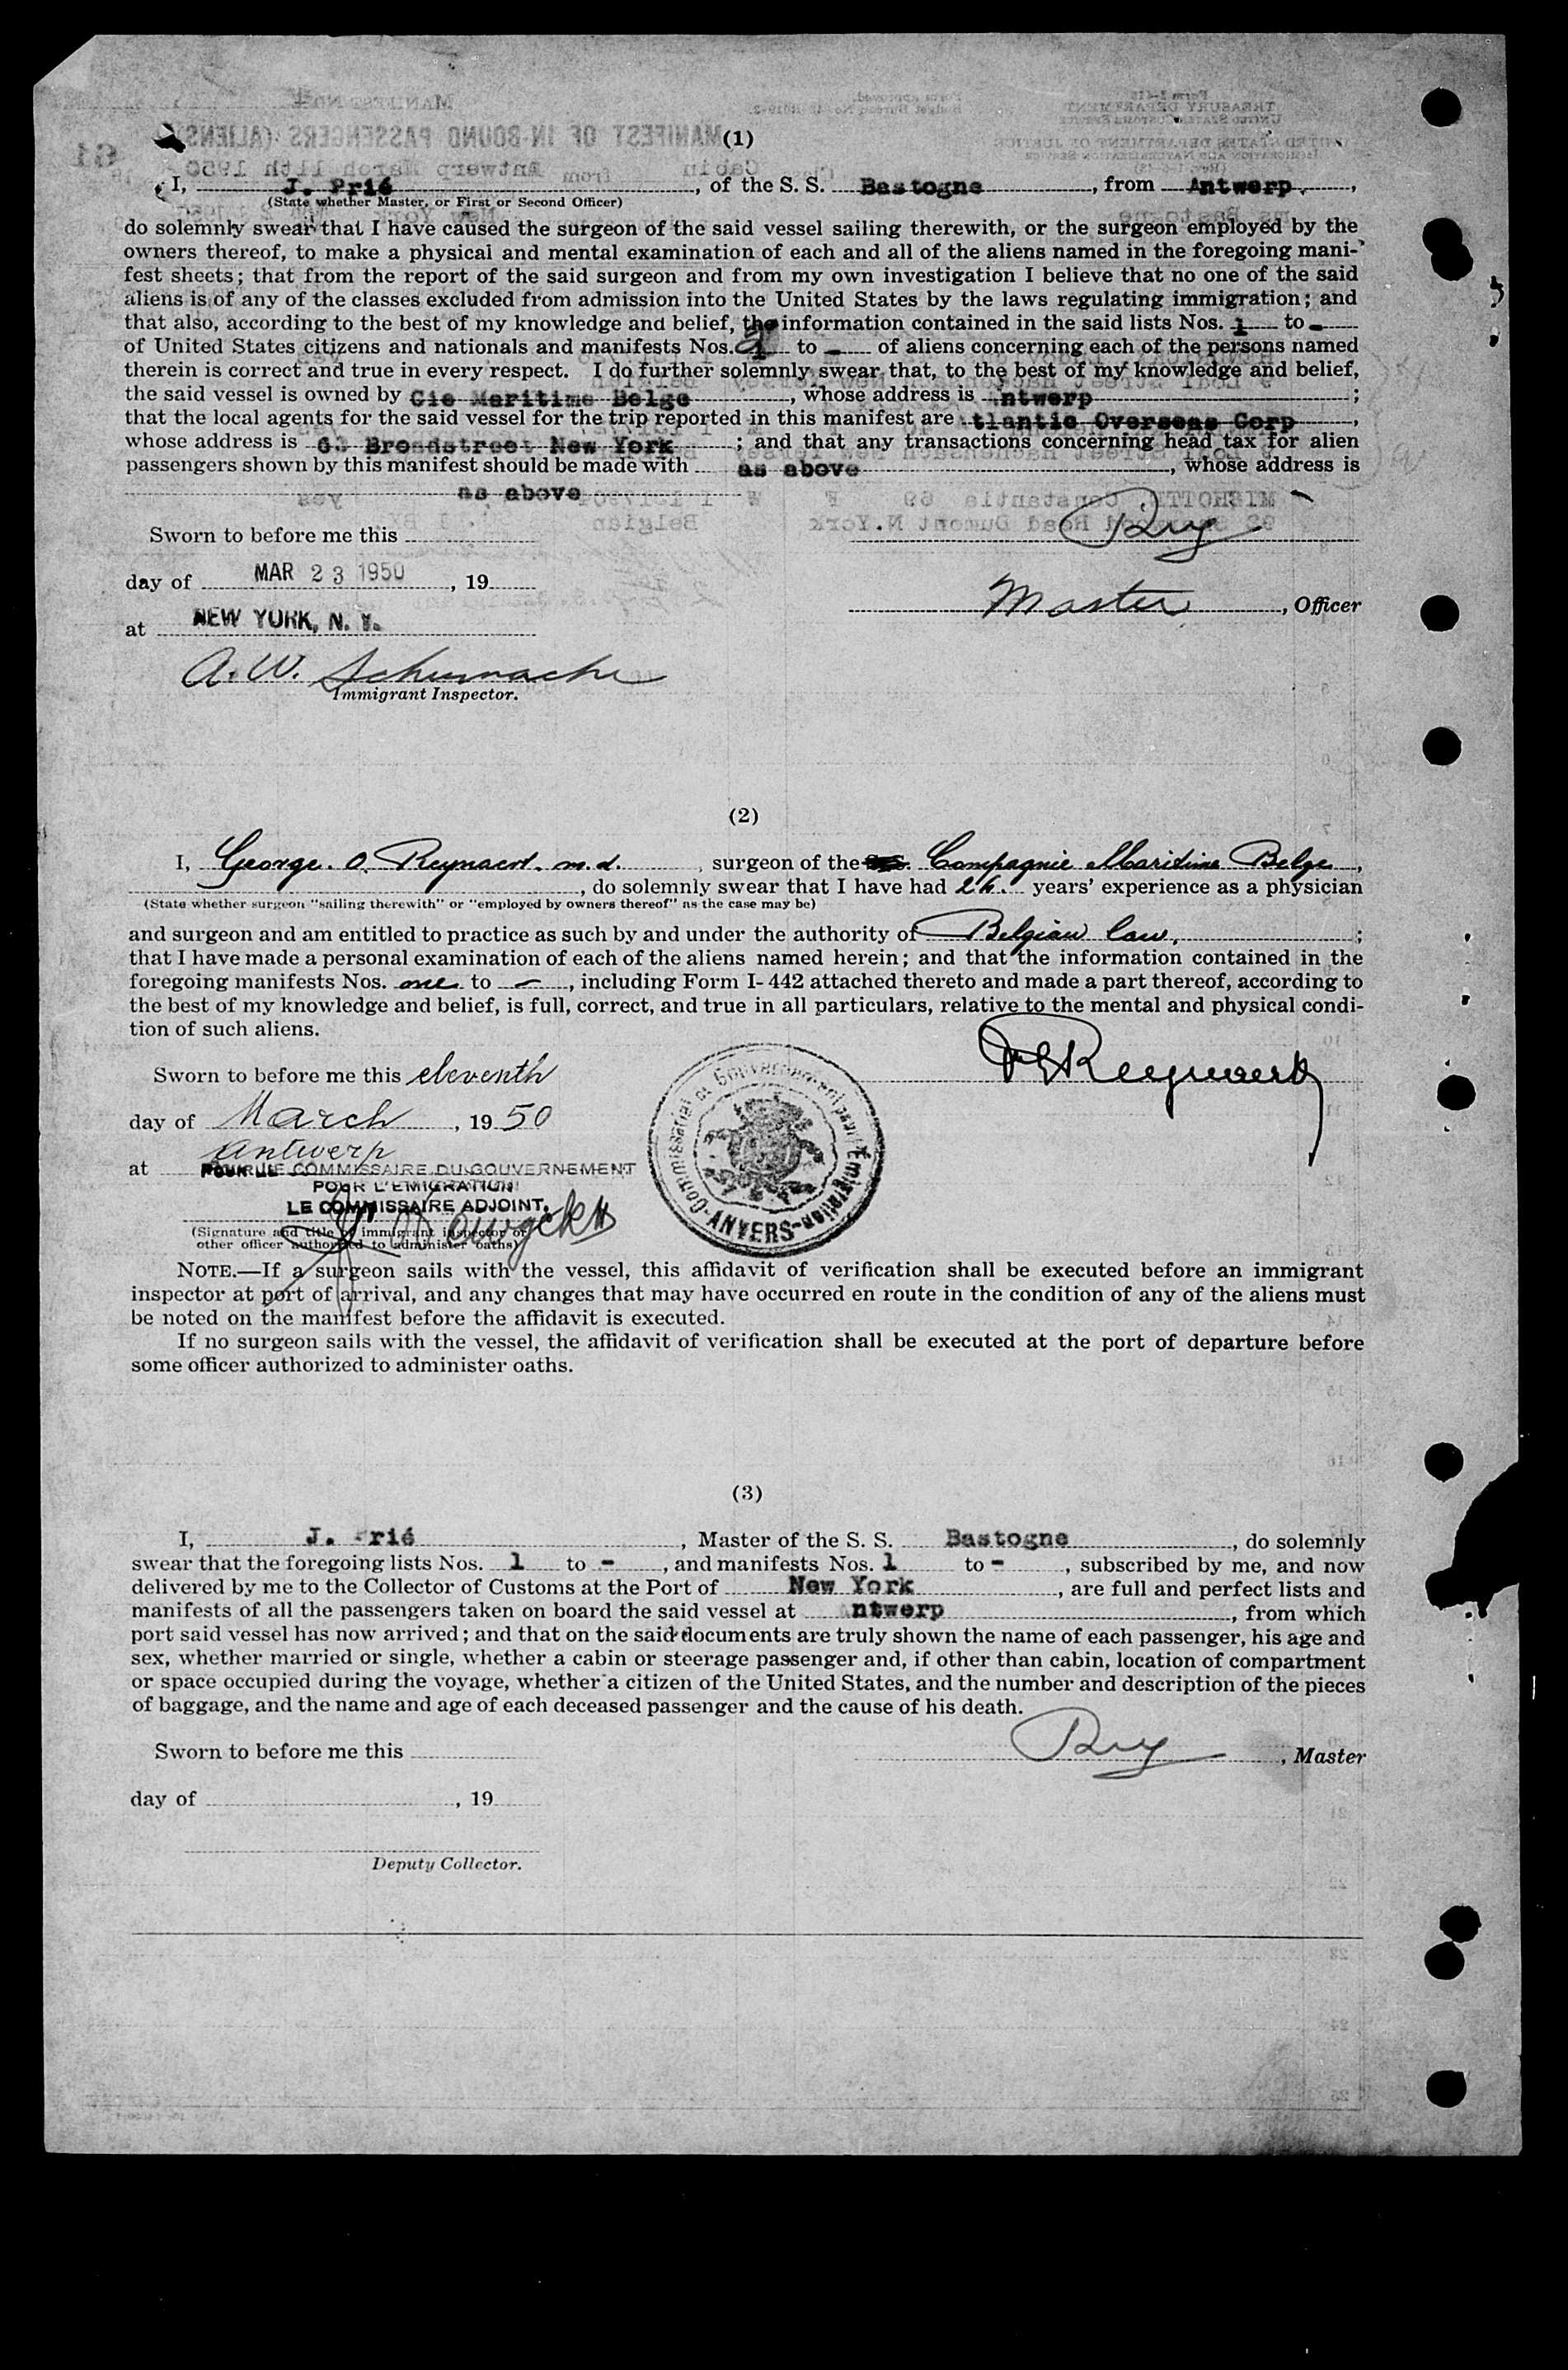 (1)
I, J. Prié, of the S. S. Bastogne, from Antwerp,
(State whether Master, or First or Second Officer)
do solemnly swear that I have caused the surgeon of the said vessel sailing therewith, or the surgeon employed by the
owners thereof, to make a physical and mental examination of each and all of the aliens named in the foregoing mani-
fest sheets; that from the report of the said surgeon and from my own investigation I believe that no one of the said
aliens is of any of the classes excluded from admission into the United States by the laws regulating immigration; and
that also, according to the best of my knowledge and belief, the information contained in the said lists Nos. 1 to -
of United States citizens and nationals and manifests Nos. 1 to - of aliens concerning each of the persons named
therein is correct and true in every respect. I do further solemnly swear that, to the best of my knowledge and belief,
the said vessel is owned by Cie Maritime Belge, whose address is Antwerp;
that the local agents for the said vessel for the trip reported in this manifest are Atlantic Overseas Corp,
whose address is Broadstreet New York; and that any transactions concerning head tax for alien
passengers shown by this manifest should be made with as above, whose address is
as above
Sworn to before me this
day of MAR 23 1950, 19
Master, Officer
at NEW YORK, N. Y.
A. W. Schumache
Immigrant Inspector.
(2)
I, George. O. Reynaert. m.d., surgeon of the S. S. Compagnie Maritime Belge,
, do solemnly swear that I have had years' experience as a physician
(State whether surgeon "sailing therewith" or "employed by owners thereof" as the case may be)
and surgeon and am entitled to practice as such by and under the authority of Belgian law,;
that I have made a personal examination of each of the aliens named herein; and that the information contained in the
foregoing manifests Nos. one to -, including Form I-442 attached thereto and made a part thereof, according to
the best of my knowledge and belief, is full, correct, and true in all particulars, relative to the mental and physical condi-
tion of such aliens.
Sworn to before me this eleventh
Reynaert
day of March, 1950
at Antwerp
POUR LE COMMISSAIRE DU GOUVERNEMENT
POUR L'EMIGRATION
LE COMMISSAIRE ADJOINT,
Commissariat du Gouvernement pour l'Emigration
-ANVERS-
(Signature and title of immigrant inspector or
other officer authorized to administer oaths)
NOTE.—If a surgeon sails with the vessel, this affidavit of verification shall be executed before an immigrant
inspector at port of arrival, and any changes that may have occurred en route in the condition of any of the aliens must
be noted on the manifest before the affidavit is executed.
If no surgeon sails with the vessel, the affidavit of verification shall be executed at the port of departure before
some officer authorized to administer oaths.
(3)
I, J. Prié, Master of the S. S. Bastogne, do solemnly
swear that the foregoing lists Nos. 1 to -, and manifests Nos. 1 to -, subscribed by me, and now
delivered by me to the Collector of Customs at the Port of New York, are full and perfect lists and
manifests of all the passengers taken on board the said vessel at Antwerp, from which
port said vessel has now arrived; and that on the said documents are truly shown the name of each passenger, his age and
sex, whether married or single, whether a cabin or steerage passenger and, if other than cabin, location of compartment
or space occupied during the voyage, whether a citizen of the United States, and the number and description of the pieces
of baggage, and the name and age of each deceased passenger and the cause of his death.
Sworn to before me this
, Master
day of , 19
Deputy Collector.